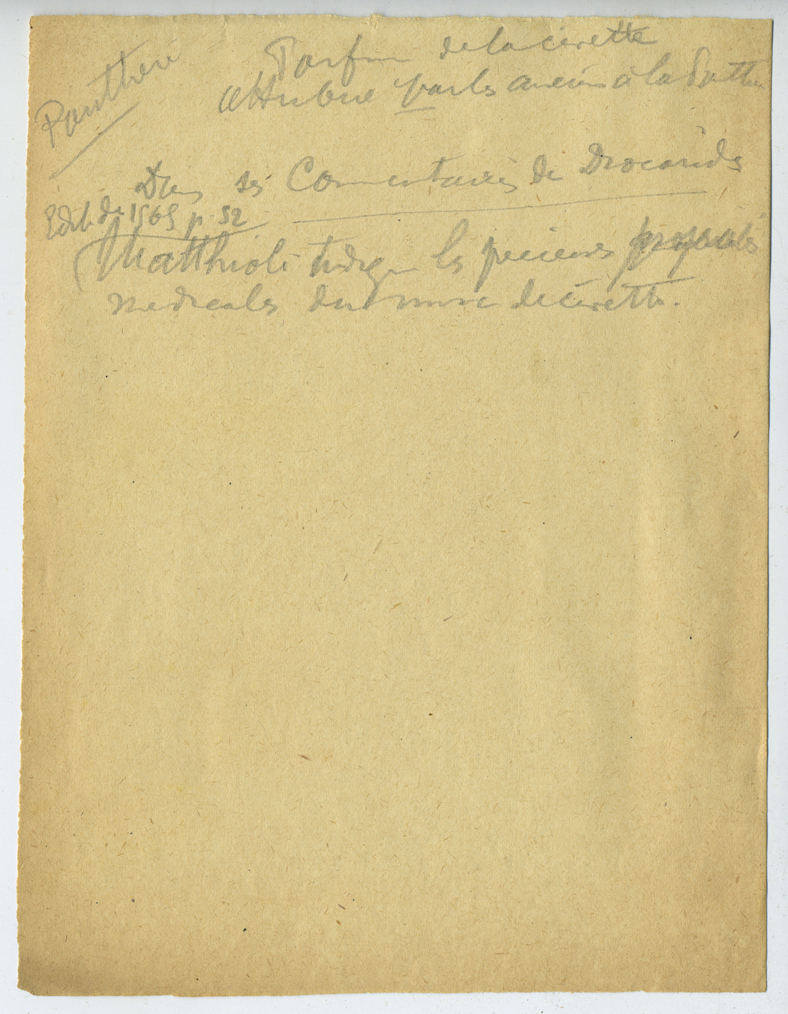 Panthère
Parfum de la civette
attribué par les anciens à la Panthère
Dans ses Commentaires de Dioscoride
Edit. de 1565 p. 52
Matthiole indique les précieuses propriétés
médicales du musc de civette.